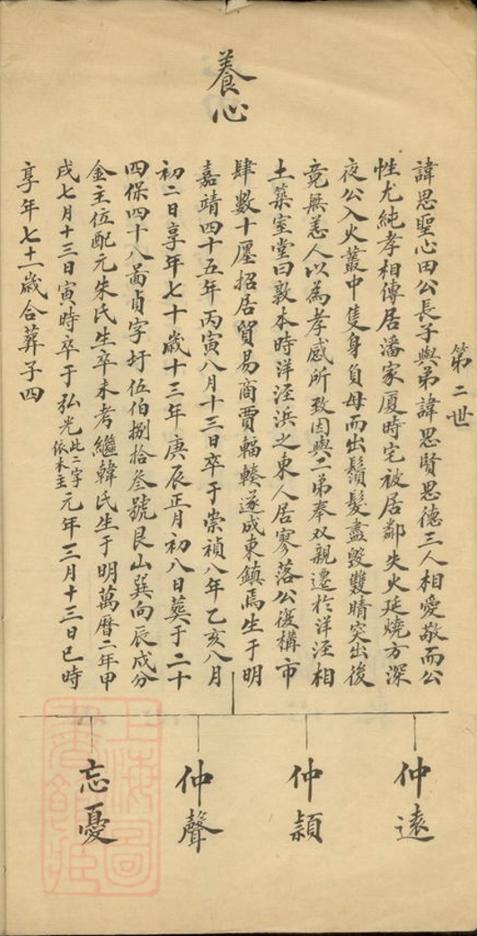 養心
第二世
諱思聖心田公長子與弟諱思賢思德三人相愛敬而公
性尤純孝相傳居潘家厦時宅被居鄰失火延燒方深
夜公入火叢中隻身負母而出鬚髮盡毀雙睛突出後
竟無恙人以為孝感所致因與二弟奉双親遷於洋涇相
土築室堂曰敦本時洋涇浜之東人居寥落公復構市
肆數十廛招居貿易商賈輻輳遂成東鎮焉生于明
嘉靖四十五年丙寅八月十三日卒于崇禎八年乙亥八月
初二日享年七十歲十三年庚辰正月初八日葬于二十
四保四十八啚貞字圩伍伯捌拾叁號艮山巽向辰戌分
金主位配元朱氏生卒未考繼韓氏生于明萬曆二年甲
戌七月十三日寅時卒于弘光此二字依木主元年三月十三日巳時
享年七十二歲合葬子四
仲遠
仲穎
仲聲
忘憂
上海圖書館藏